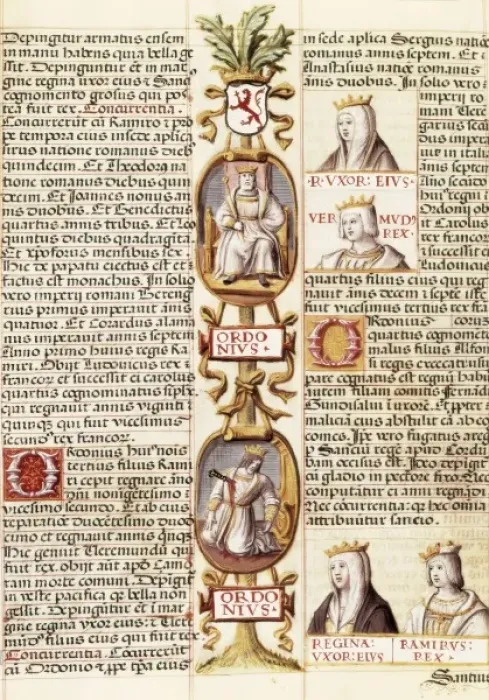 Depingitur armatus ensem
in manu habens quia bella ge
ssit. Depinguntur et in mar
gine regina uxor eius & Sanci
cognomento grosus qui pos
tea fuit rex. Concurrentia.
Concurrerut cu Ramiro & pro
pe tempora eius in sede aplica
natione romanus dieb
quindecim. Et Theodorus na
tione romanus diebus quin
decim. Et Joannes nonus an
nis duobus. Et Benedictus
quartus annis tribus. Et Leo
quintus diebus quadraginta.
Et xpoforus mensibus sex.
Hic de papatu eiectus est et
factus est monachus. In solio
vero imperii romani Bereng
eius primus imperauit annis
quatuor. Et Corardus alama
nus imperauit annis septem
Anno primo huius regis Ra
miri. Obiit Ludouicus rex
francor et successit ei carolus
quartus cognominatus siplx
qui regnauit annis viginti
quinque qui fuit vicesimus
secundus rex francor.
Ordonius huius nois
tertius filius Rami
ri cepit regnare anno
dni nongetesimo
vicesimo secundo. Et ab eius
reparatioe ducetesimo duod
cimo et regnauit annis qinq
Hic genuit Veremundu qui
fuit rex. obijt aut apd Camo
ram morte comuni. Depigit
in veste pacifica quia bella non
gessit. Depingutur et i mar
gine regina vxor eius: & Vere
mud filius eius qui fuit rex.
Concurrentia. Cocurrerut
cu Ordonio & ppe tpa eius
ORDO
NIVS
ORDO
NIVS
in sede aplica Sergius natioe
romanus annis septem. Et
Anastasius natioe romanus
annis duobus. In solio vero
imperij ro
mani
in itali
annis septem
Ano secudo
hui regni
Ordonij ob
it Carolus
rex francor
i successit ei
Ludouicus
quartus filius eius qui reg
nauit anis decem i septe iste
fuit vicesimus tertius rex fra
R. VXOR: EIVS
VER MVD9
REX
Ordonius
quartus cognometo
malus filius Alfon
si regis execaturi
pare cognatus est regnu habu
autem filiam comitis fernadi
Gundisalui i uxore. Et ppter
malicia eius abstulit ea ab eo
comes. Ipe vero fugatus a reg
p Sanciu rege apud Cordu
bam occisus est. Ideo depigit
cu gladio in pectore fixo. Nec
computatur ei anni regnadi
Nec cocurrentia: qz hec omnia
attribuutur sancio.
REGINA:
VXOR: EIVS
RAMIRVS:
REX
Santius